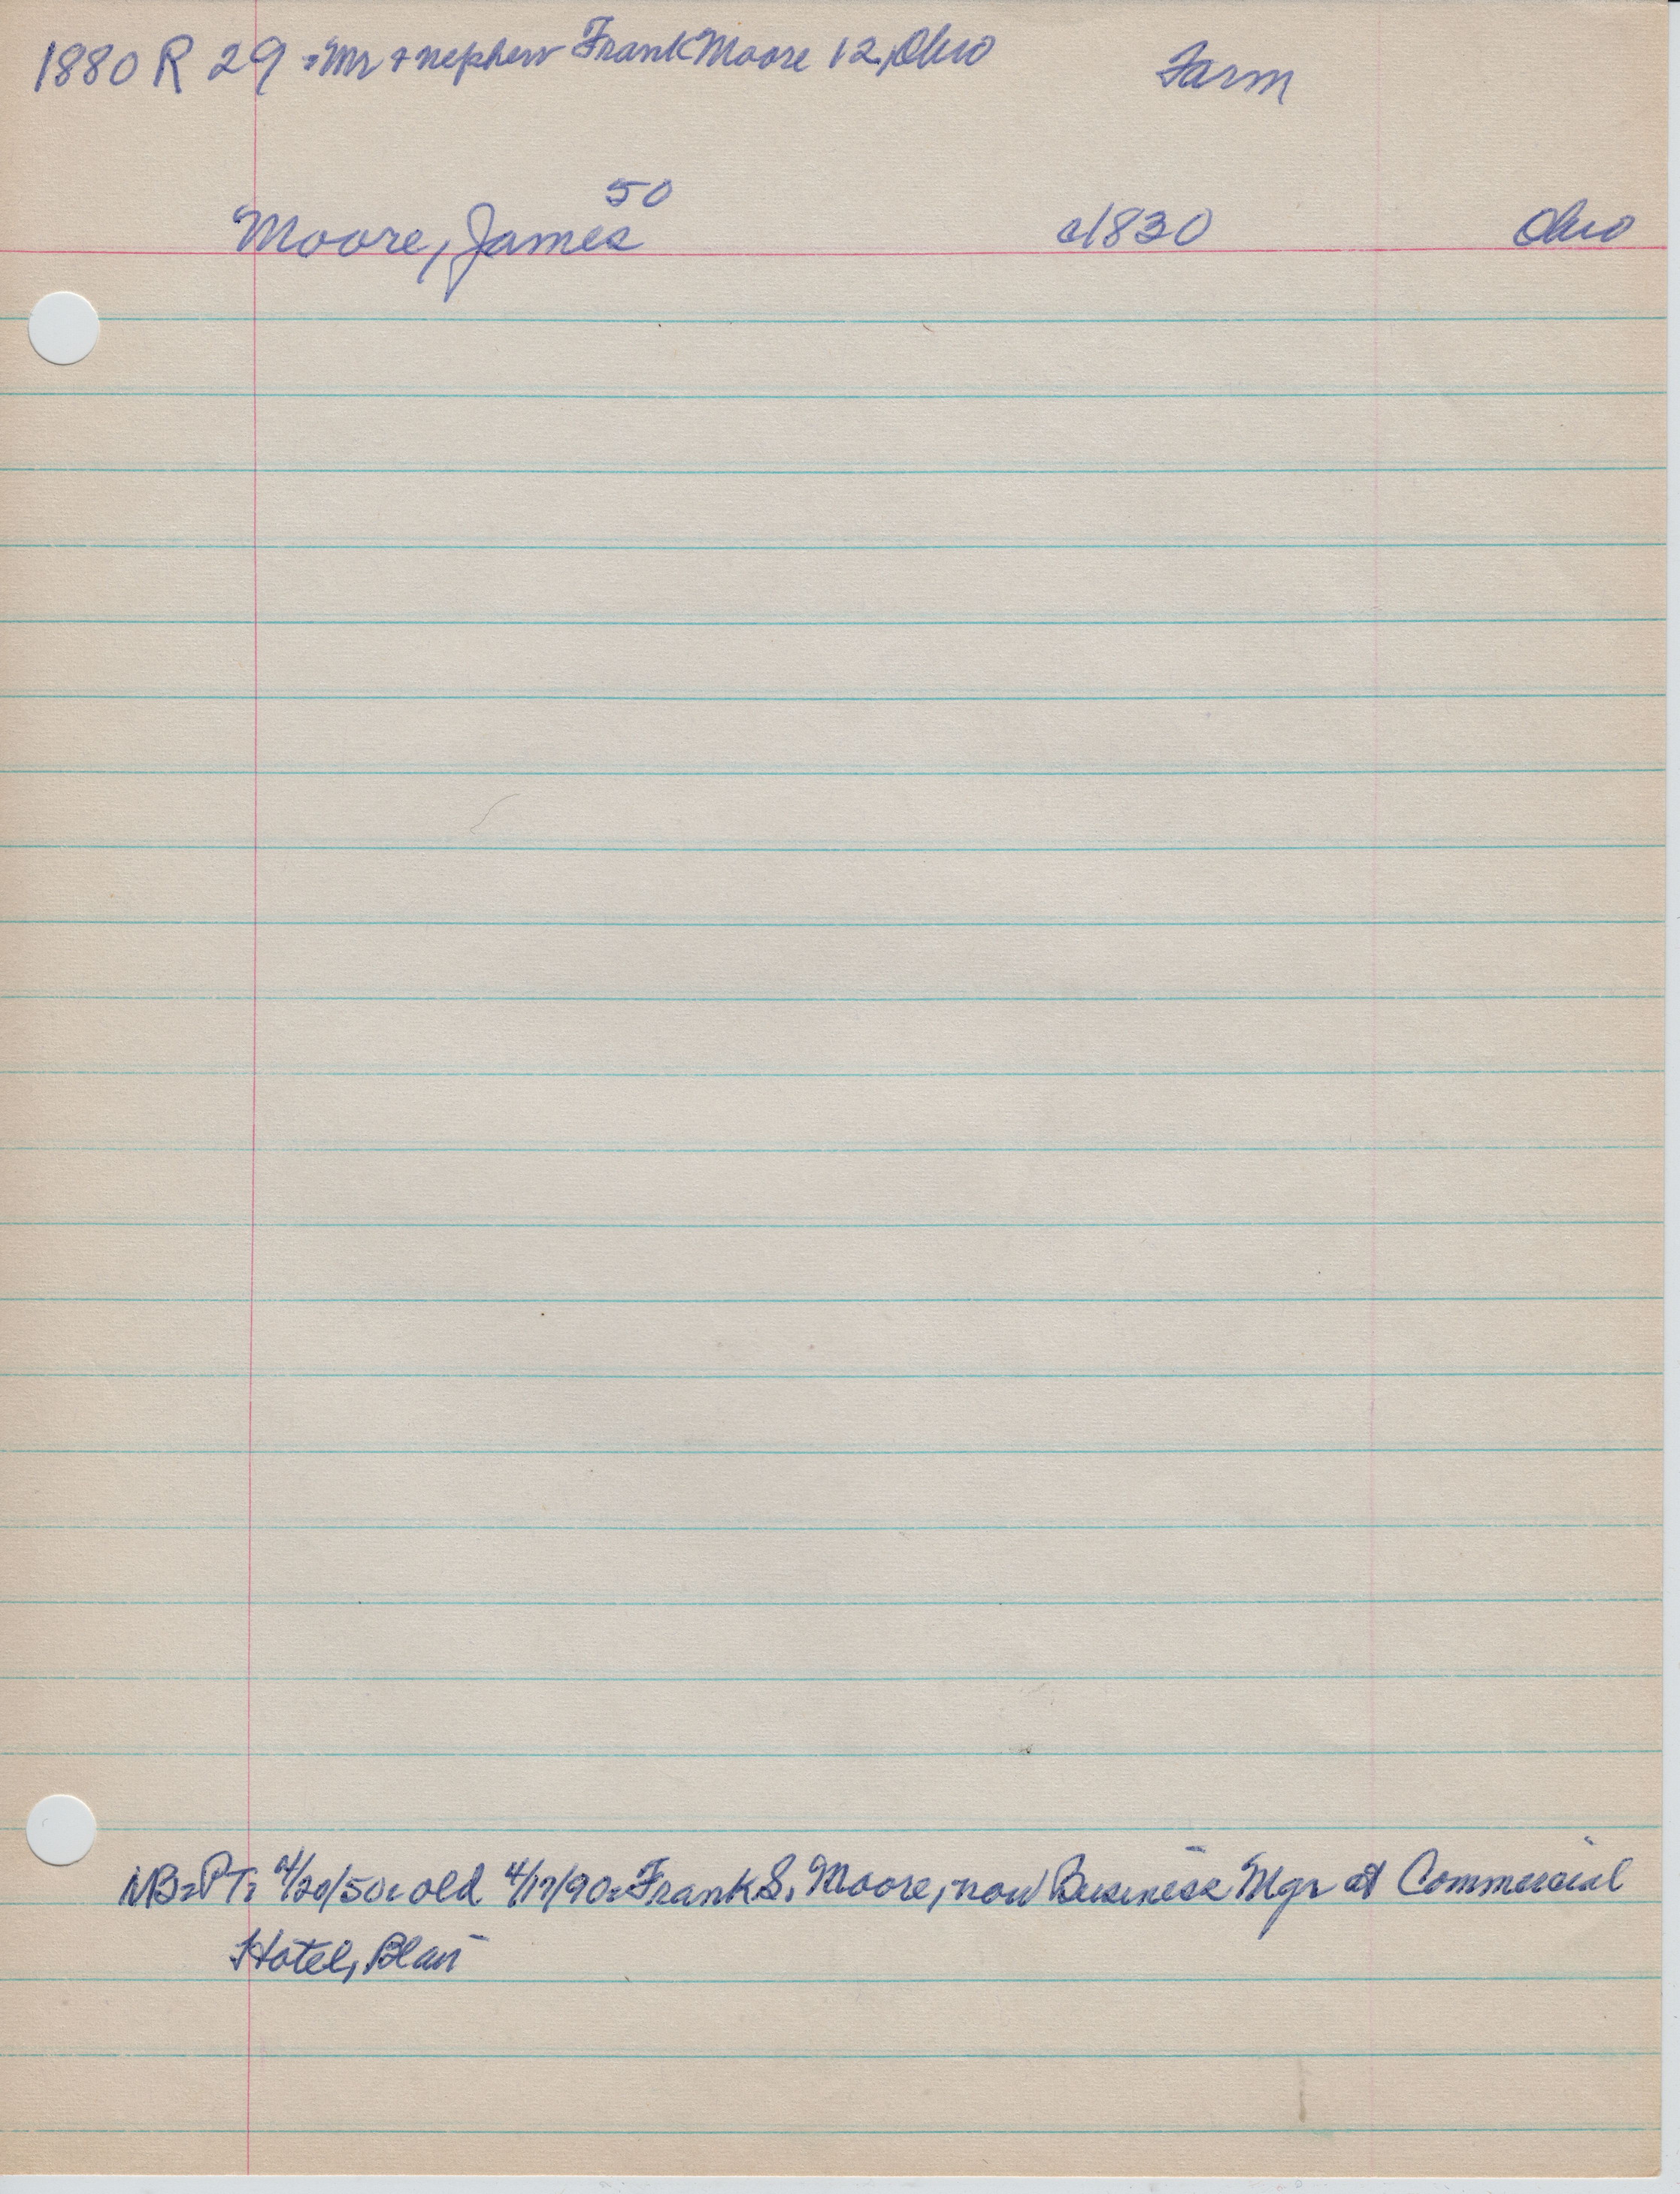 1880 R 29 = Mr + nephew Frank Moore 12, Ohio Farm
50
Moore, James c1830 Ohio
NB=PT= 4/20/50= old 4/17/90= Frank S. Moore, now Business Mgr at Commercial
Hotel, Blair